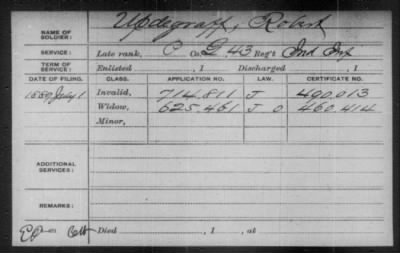 NAME OF SOLDIER: Updegraff, Robert
SERVICE: Late rank, P Co. G, 43 Reg't Ind Inf
TERM OF SERVICE: Enlisted , 1 Discharged , 1
DATE OF FILING. CLASS. APPLICATION NO. LAW. CERTIFICATE NO.
1889, July 1 Invalid, 714.811 J 490.013
Widow, 625.461 J O 460.414
Minor,
ADDITIONAL SERVICES:
REMARKS:
Died , 1 , at